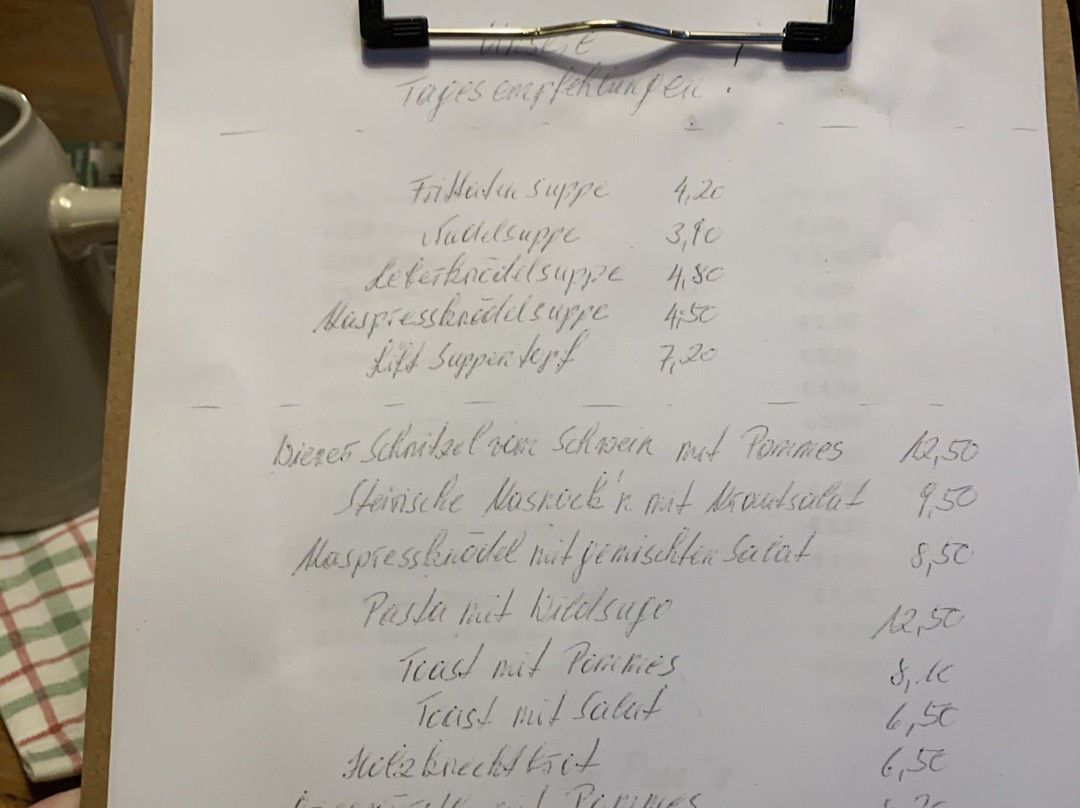 Unsere
Tagesempfehlungen.
Frittatensuppe 4,20
Nudelsuppe
Leberknödelsuppe 4,80
Kaspressknödelsuppe 4,50
Lift Suppentopf 7,20
Wiener Schnitzel vom Schwein mit Pommes 12,50
Steirische Kasnock'n mit Krautsalat 9,50
Kaspressknödel mit gemischten Salat 8,50
Pasta mit Wildsugo 12,50
Toast mit Pommes
Toast mit Salat 6,50
Holzknechtbrot 6,50
mit Pommes